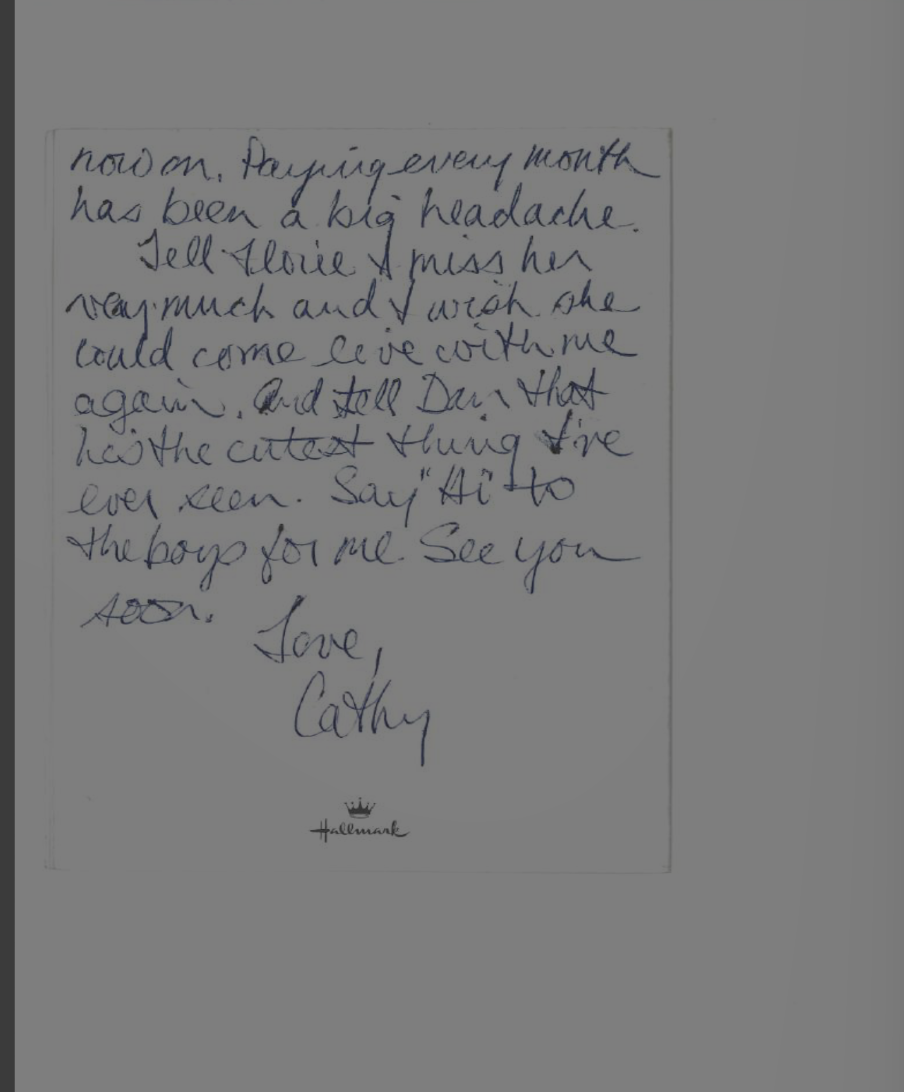 now on. Paying every month
has been a big headache.
Tell I miss her
very much and I wish she
could come live with me
again. And tell Dan that
he's the cutest thing I've
ever seen. Say "Hi" to
the boys for me. See you
soon.
Love,
Cathy
Hallmark